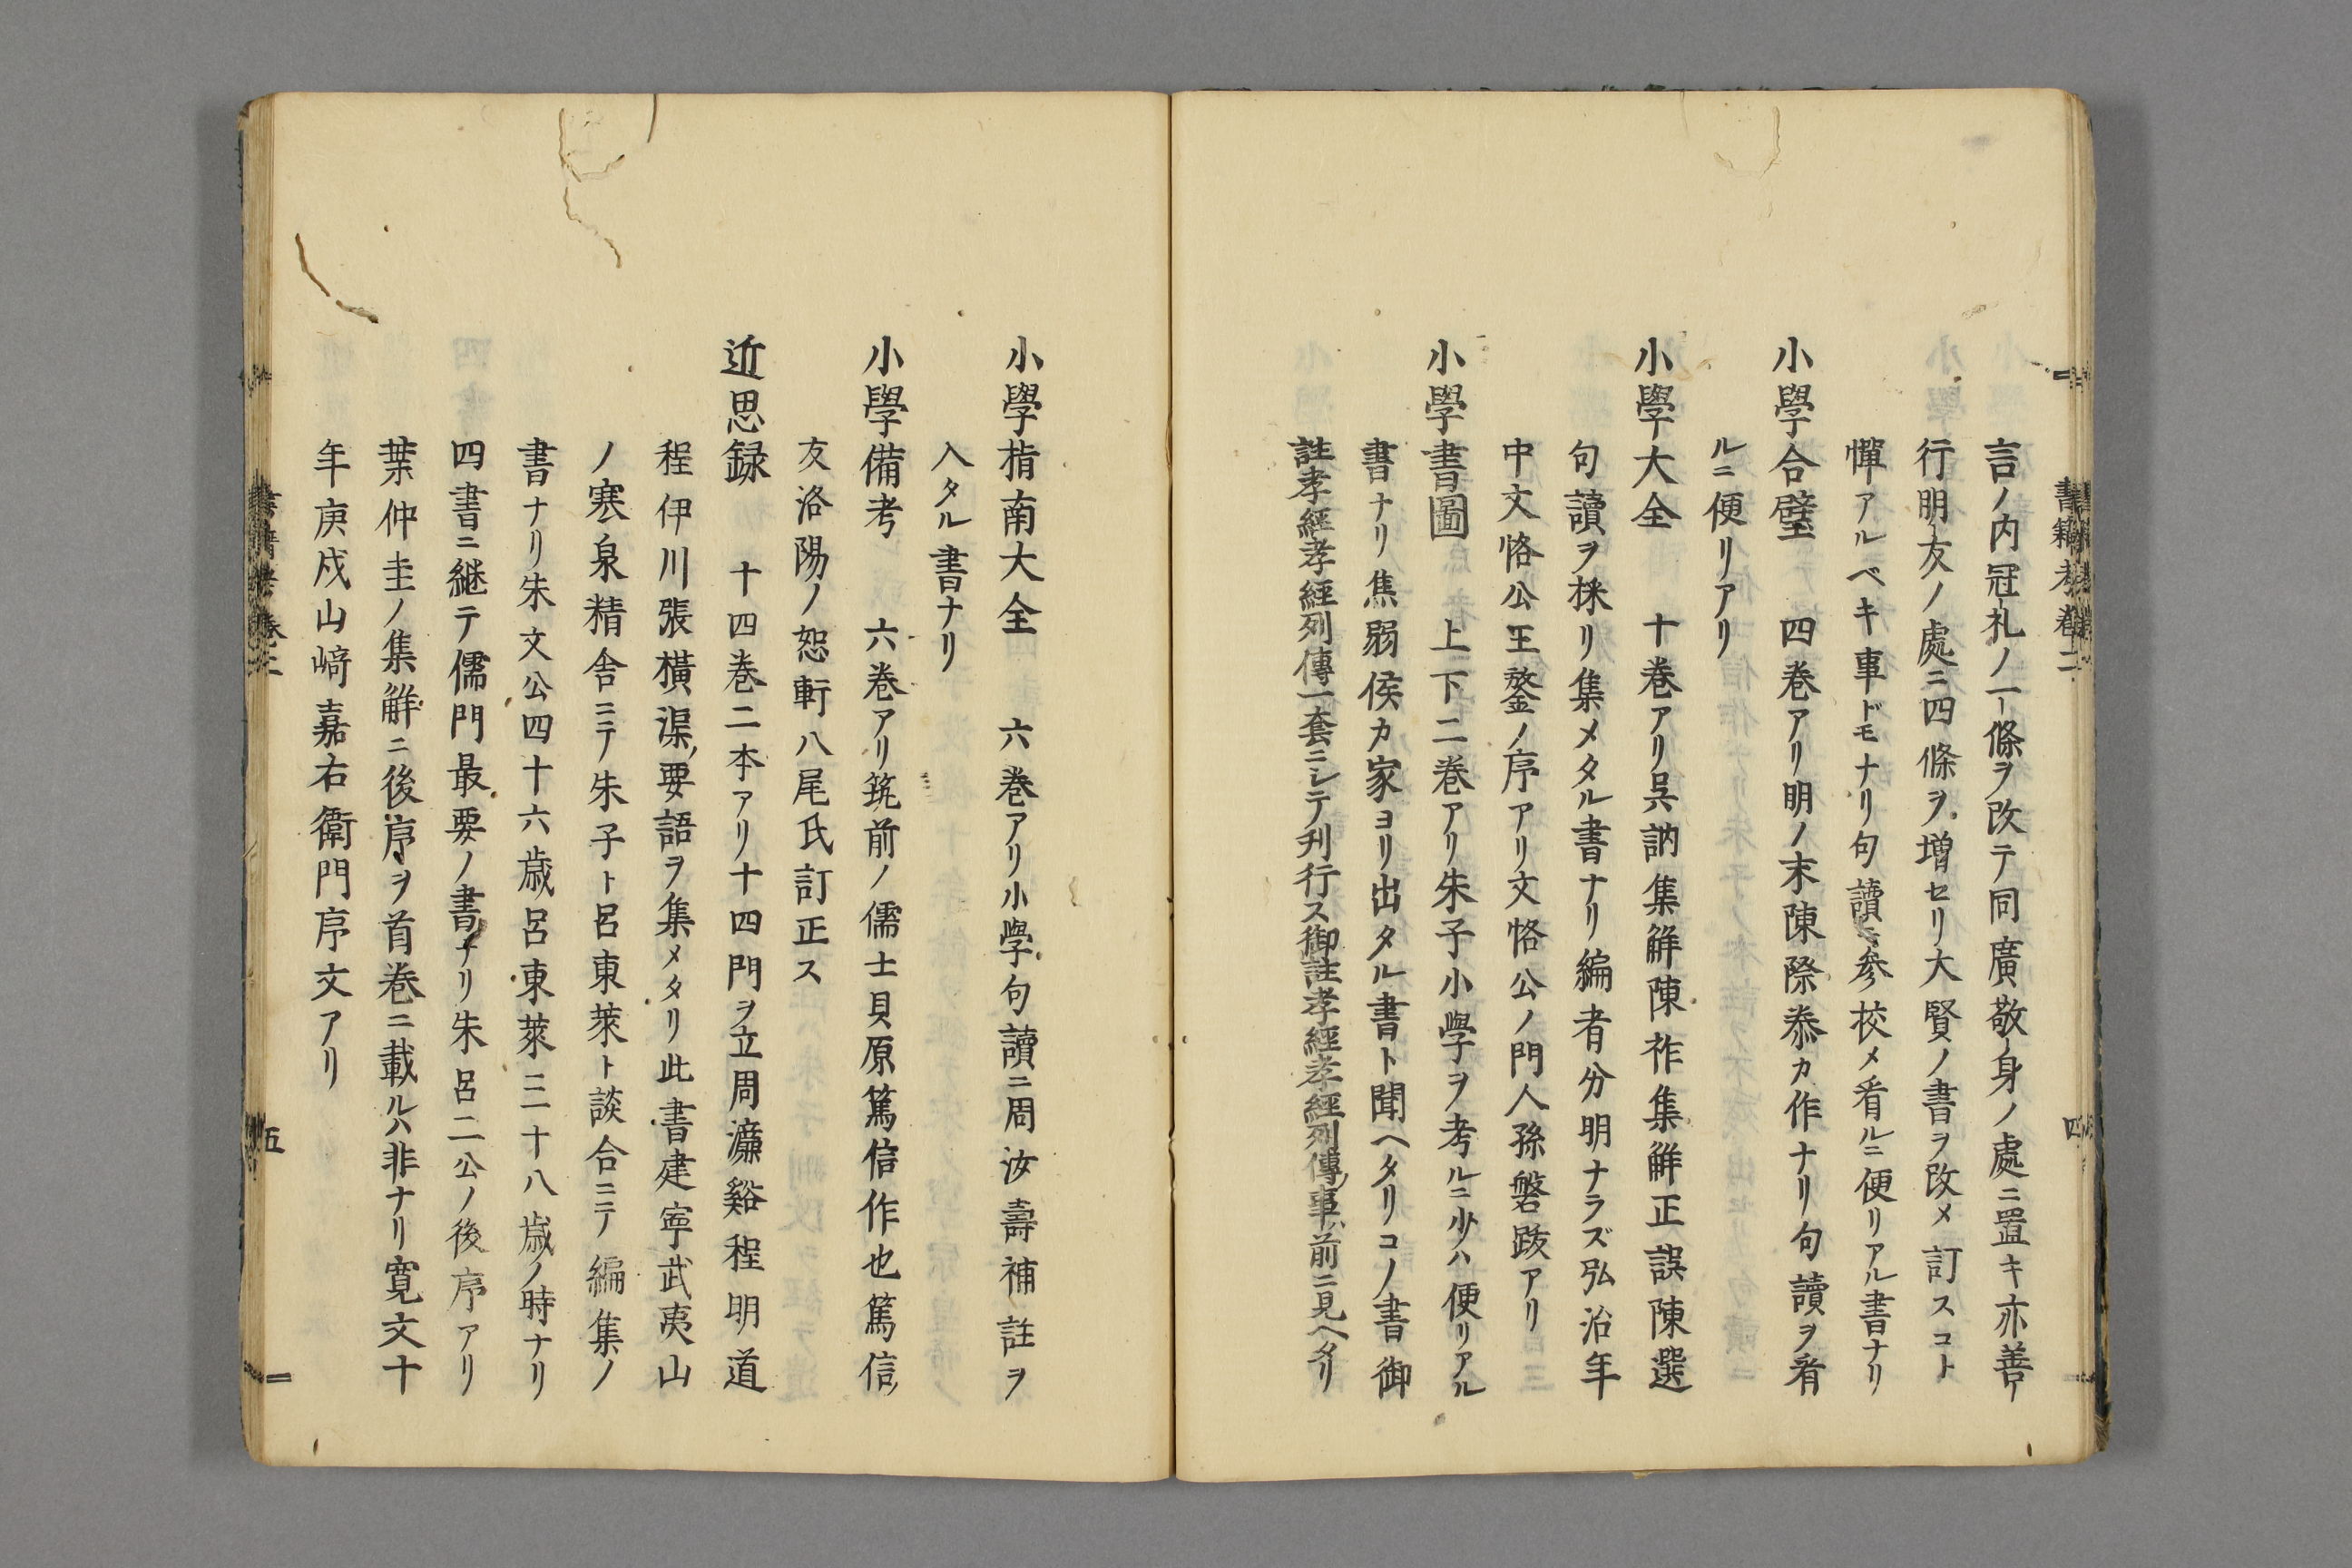 書籍考 卷二
四
言ノ内冠礼ノ一條ヲ改テ同廣敬身ノ處ニ置キ亦善
行明友ノ處ニ四條ヲ増セリ大賢ノ書ヲ改メ訂スコト
憚アルベキ事ドモナリ句讀ニ参校メ看ルニ便リアル書ナリ
小學合璧 四巻アリ明ノ末陳際泰カ作ナリ句讀ヲ看
ルニ便リアリ
小學大全 十巻アリ呉訥集解陳祚集解正誤陳選
句讀ヲ採リ集メタル書ナリ編者分明ナラズ弘治年
中文恪公王鏊ノ序アリ文恪公ノ門人孫磐跋アリ
小學書圖 上下二巻アリ朱子小學ヲ考ルニ少ハ便リアル
書ナリ焦弱侯カ家ヨリ出タル書ト聞ヘタリコノ書御
註孝經孝經列傳一套ニシテ刋行ス御註孝經孝經列傳ノ事ハ前ニ見ヘタリ
小學指南大全 六巻アリ小學句讀ニ周汝壽補註ヲ
入タル書ナリ
小學備考 六巻アリ筑前ノ儒士貝原篤信作也篤信
友洛陽ノ恕軒八尾氏訂正ス
近思録 十四巻二本アリ十四門ヲ立周濂谿程明道
程伊川張横渠ノ要語ヲ集メタリ此書建寧武夷山
ノ寒泉精舎ニテ朱子ト呂東萊ト談合ニテ編集ノ
書ナリ朱文公四十六歳呂東萊三十八歳ノ時ナリ
四書ニ継テ儒門最要ノ書ナリ朱呂二公ノ後序アリ
葉仲圭ノ集解ニ後序ヲ首巻ニ載ルハ非ナリ寛文十
年庚戌山﨑嘉右衛門序文アリ
書籍考 卷二
五